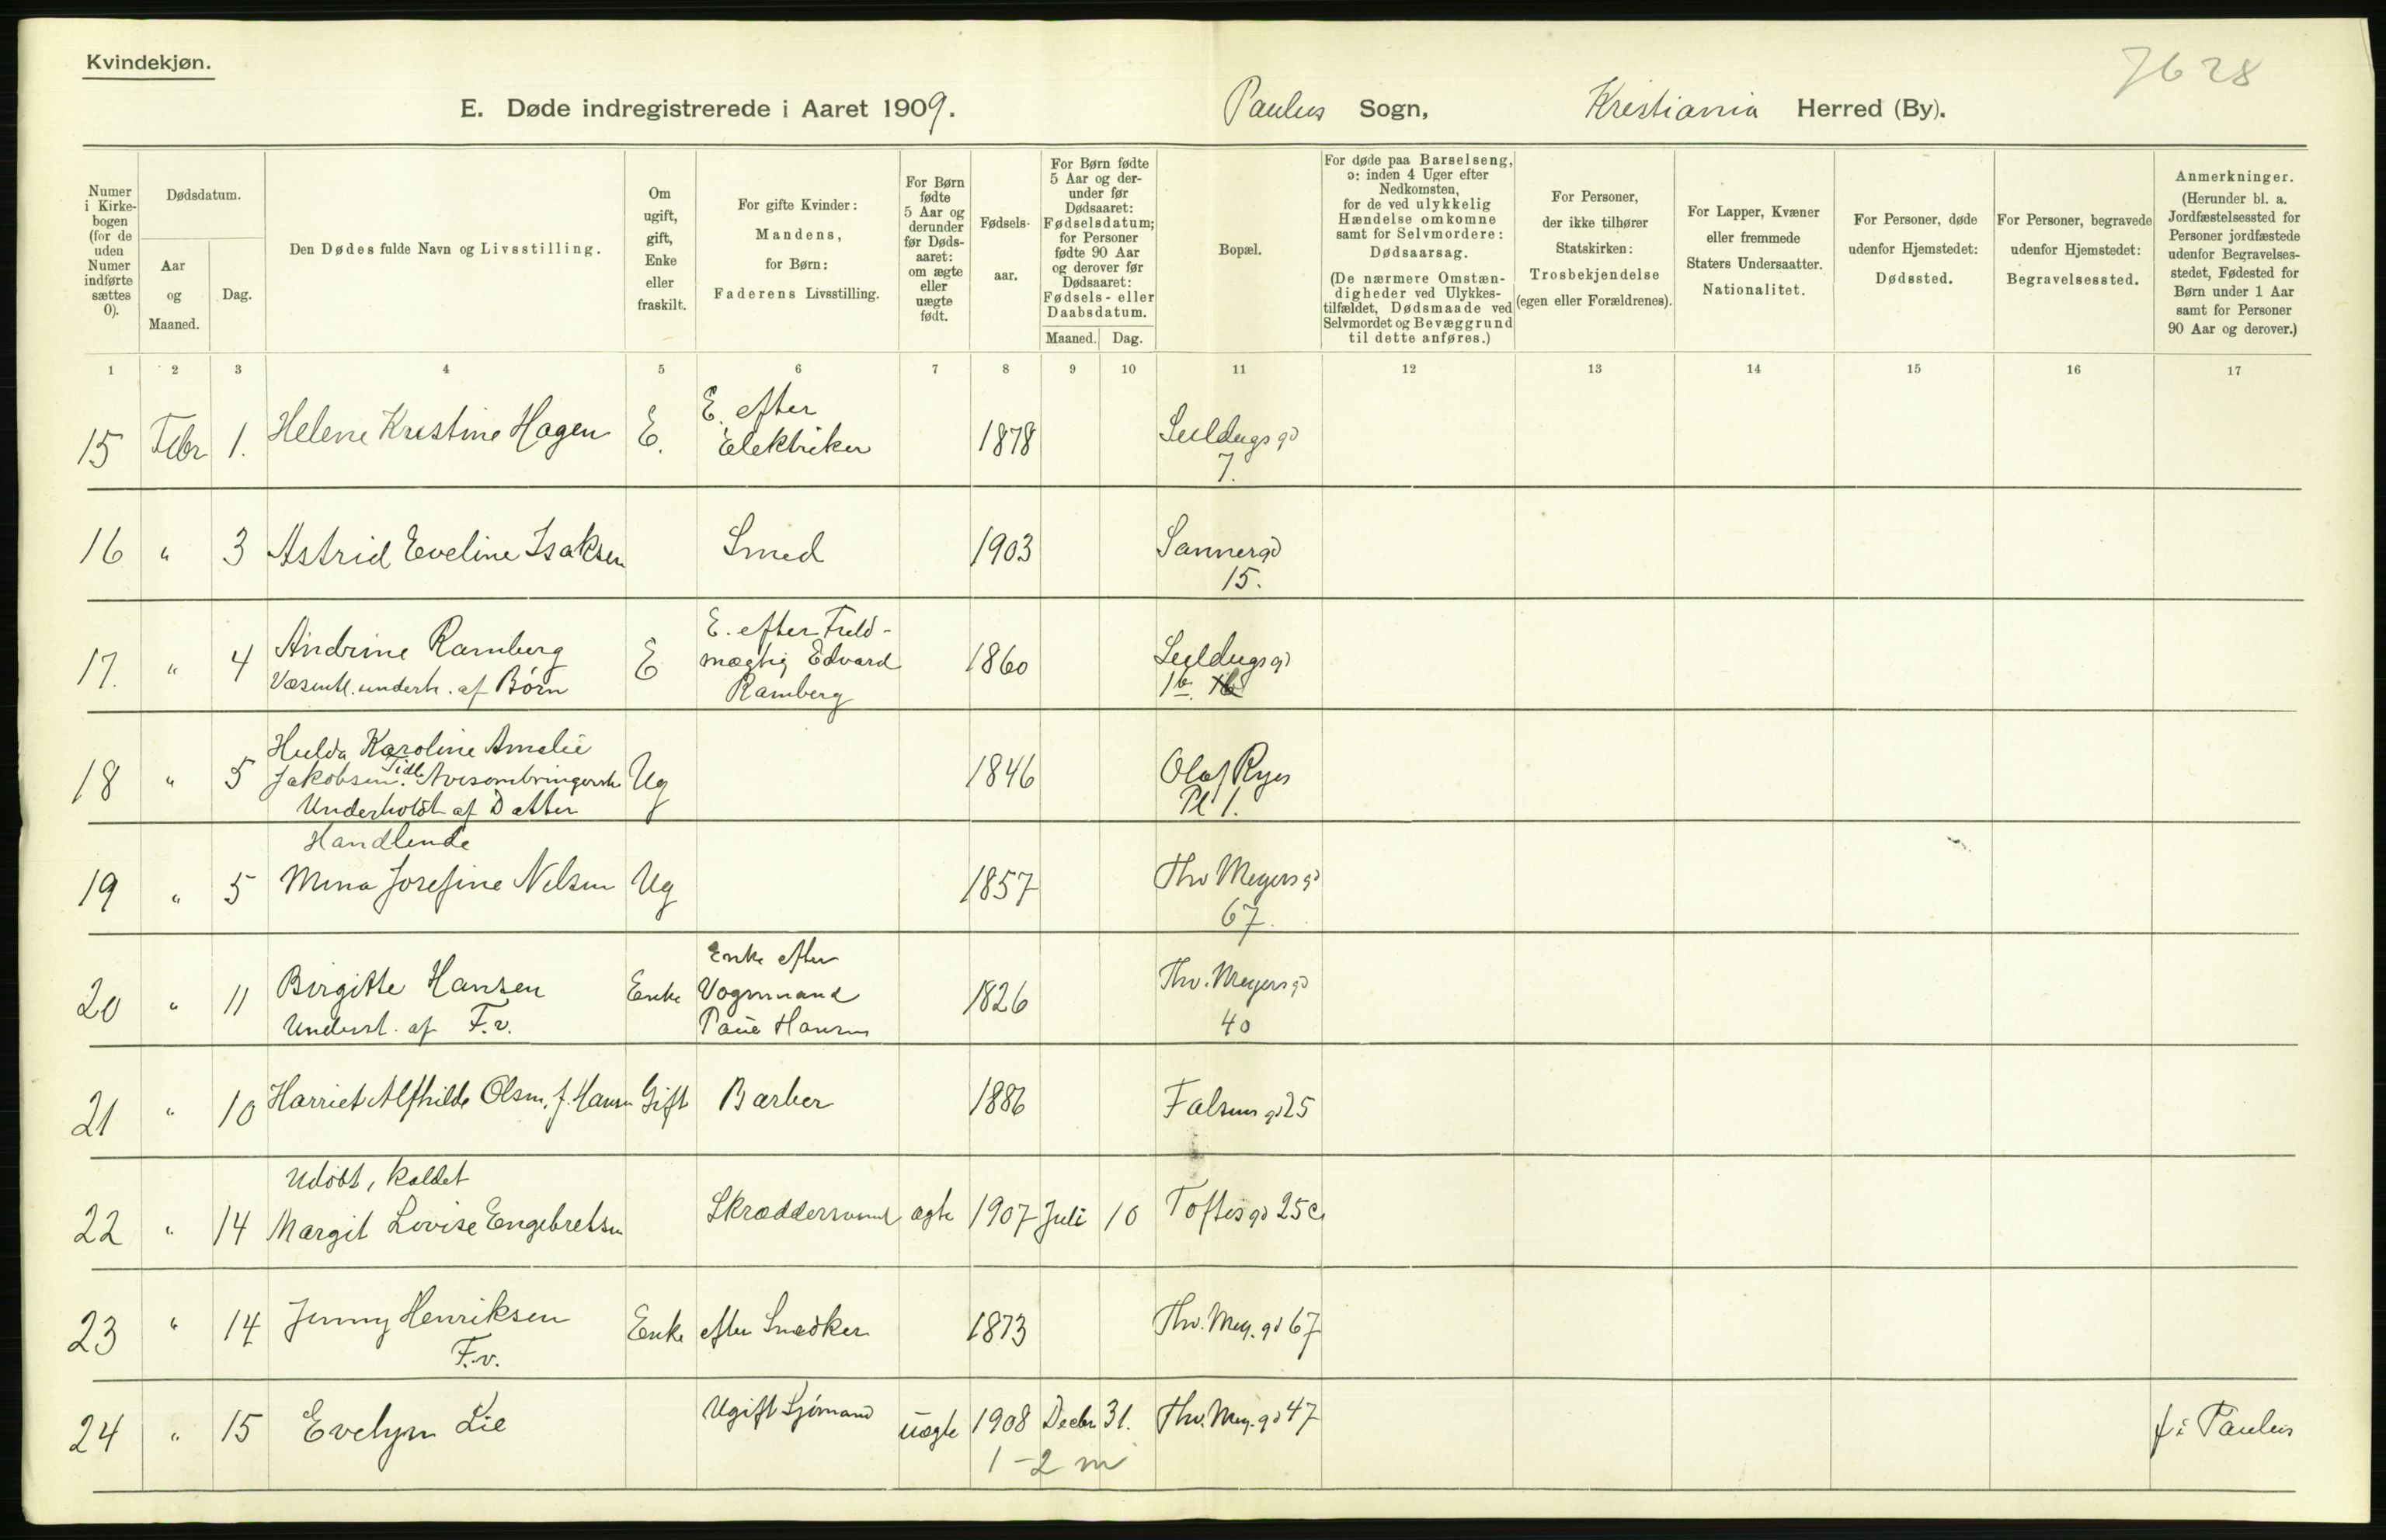 Kvindekjøn.
7628
E. Døde indregistrerede i Aaret 1909. Paulus Sogn, Kristiania Herred (By).
Numer i Kirkebogen (for de uden Numer indførte sættes 0).
Dødsdatum.
Aar og Maaned.
Dag.
Den Dødes fulde Navn og Livsstilling.
Om ugift, gift, Enke eller fraskilt.
For gifte Kvinder: Mandens, for Børn: Faderens Livsstilling.
For Børn fødte 5 Aar og derunder før Dødsaaret: om ægte eller uægte født.
Fødselsaar.
For Børn fødte 5 Aar og derunder før Dødsaaret: Fødselsdatum; for Personer fødte 90 Aar og derover før Dødsaaret: Fødsels- eller Daabsdatum.
Maaned. Dag.
Bopæl.
For døde paa Barselseng, ɔ: inden 4 Uger efter Nedkomsten, for de ved ulykkelig Hændelse omkomne samt for Selvmordere: Dødsaarsag. (De nærmere Omstændigheder ved Ulykkestilfældet, Dødsmaade ved Selvmordet og Bevæggrund til dette anføres.)
For Personer, der ikke tilhører Statskirken: Trosbekjendelse (egen eller Forældrenes).
For Lapper, Kvæner eller fremmede Staters Undersaatter. Nationalitet.
For Personer, døde udenfor Hjemstedet: Dødssted.
For Personer, begravede udenfor Hjemstedet: Begravelsessted.
Anmerkninger. (Herunder bl. a. Jordfæstelsessted for Personer jordfæstede udenfor Begravelsesstedet, Fødested for Børn under 1 Aar samt for Personer 90 Aar og derover.)
1 2 3 4 5 6 7 8 9 10 11 12 13 14 15 16 17
15 Febr 1. Helene Kristine Hagen E. E. efter Elektriker 1878 Seildugsgd 7.
16 " 3 Astrid Eveline Isaksen Smed 1903 Sannergd 15.
17. " 4 Andrine Ramberg E E. efter Fuld- 1860 Seildugsgd
Væsentl. underh. af Børn mægtig Edvard Ramberg 16.
18 " 5 Hulda Karoline Amalie Ug 1846 Olaf Ryes
Jakobsen. Tidl. Avisombringerske Pl 1.
Underholdt af Datter
Handlende
19 " 5 Mina Josefine Nelsen Ug 1857 Thv Meyersgd 67.
20 " 11 Birgitte Hansen Enke Enke efter 1826 Thv. Meyersgd
Underst. af F.v. Vognmand Hansen 40
21 " 10 Harriet Alfhilde Olsen, f. Hansen Gift Barber 1886 Falsensgd 25
Udøbt, kaldet
22 " 14 Margit Lovise Engebretsen Skræddersvend ægte 1907 Juli 10 Toftesgd 25c
23 " 14 Jenny Henriksen Enke efter Snedker 1873 Thv. Mey. gd 67
F.v.
24 " 15 Evelyn Lie Ugift Sjømand uægte 1908 Decbr 31. Thv. Mey. gd 47 f. i Paulus
1-2 m